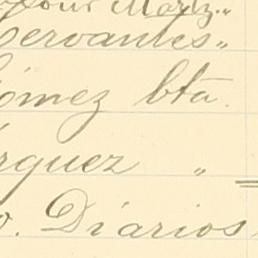 Mártz. "
Cervantes "
Gómez bta.
rquez "
o. Diarios